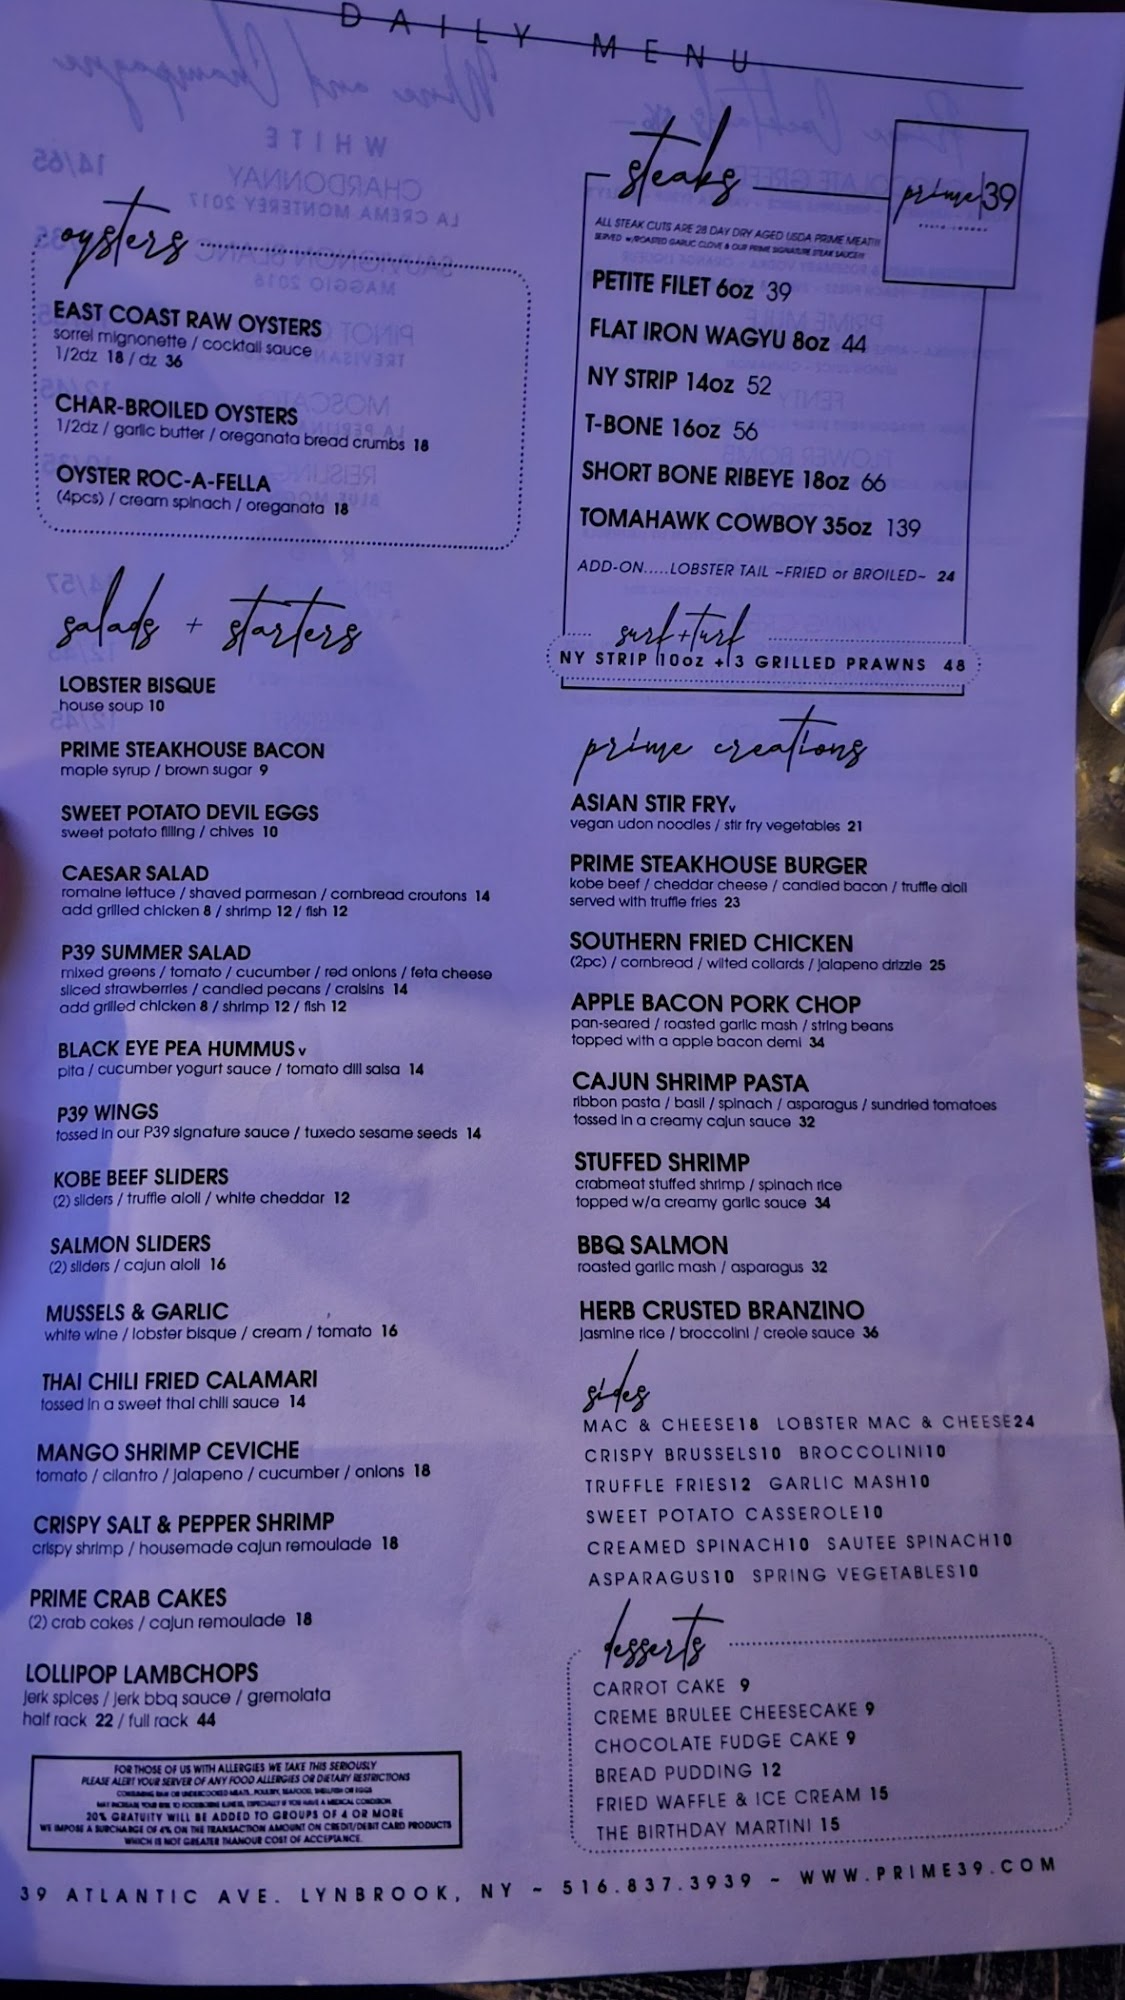 DAILY MENU
oysters
EAST COAST RAW OYSTERS
sorrel mignonette / cocktail sauce
1/2dz 18 / dz 36
CHAR-BROILED OYSTERS
1/2dz / garlic butter / oreganata bread crumbs 18
OYSTER ROC-A-FELLA
(4pcs) / cream spinach / oreganata 18
salads + starters
LOBSTER BISQUE
house soup 10
PRIME STEAKHOUSE BACON
maple syrup / brown sugar 9
SWEET POTATO DEVIL EGGS
sweet potato filling / chives 10
CAESAR SALAD
romaine lettuce / shaved parmesan / cornbread croutons 14
add grilled chicken 8 / shrimp 12 / fish 12
P39 SUMMER SALAD
mixed greens / tomato / cucumber / red onions / feta cheese
sliced strawberries / candied pecans / craisins 14
add grilled chicken 8 / shrimp 12 / fish 12
BLACK EYE PEA HUMMUS v
pita / cucumber yogurt sauce / tomato dill salsa 14
P39 WINGS
tossed in our P39 signature sauce / tuxedo sesame seeds 14
KOBE BEEF SLIDERS
(2) sliders / truffle aioli / white cheddar 12
SALMON SLIDERS
(2) sliders / cajun aioli 16
MUSSELS & GARLIC
white wine / lobster bisque / cream / tomato 16
THAI CHILI FRIED CALAMARI
tossed in a sweet thai chili sauce 14
MANGO SHRIMP CEVICHE
tomato / cilantro / jalapeno / cucumber / onions 18
CRISPY SALT & PEPPER SHRIMP
crispy shrimp / housemade cajun remoulade 18
PRIME CRAB CAKES
(2) crab cakes / cajun remoulade 18
LOLLIPOP LAMBCHOPS
jerk spices / jerk bbq sauce / gremolata
half rack 22 / full rack 44
FOR THOSE OF US WITH ALLERGIES WE TAKE THIS SERIOUSLY
PLEASE ALERT YOUR SERVER OF ANY FOOD ALLERGIES OR DIETARY RESTRICTIONS
CONSUMING RAW OR UNDERCOOKED MEATS, POULTRY, SEAFOOD, SHELLFISH OR EGGS
MAY INCREASE YOUR RISK TO FOODBORNE ILLNESS, ESPECIALLY IF YOU HAVE A MEDICAL CONDITION.
20% GRATUITY WILL BE ADDED TO GROUPS OF 4 OR MORE
WE IMPOSE A SURCHARGE OF 4% ON THE TRANSACTION AMOUNT ON CREDIT/DEBIT CARD PRODUCTS
WHICH IS NOT GREATER THANOUR COST OF ACCEPTANCE.
steaks
prime|39
ALL STEAK CUTS ARE 28 DAY DRY AGED USDA PRIME MEAT!!!
SERVED w/ROASTED GARLIC CLOVE & OUR PRIME SIGNATURE STEAK SAUCE!!!
PETITE FILET 6oz 39
FLAT IRON WAGYU 8oz 44
NY STRIP 14oz 52
T-BONE 16oz 56
SHORT BONE RIBEYE 18oz 66
TOMAHAWK COWBOY 35oz 139
ADD-ON.....LOBSTER TAIL ~FRIED or BROILED~ 24
surf+turf
NY STRIP 10oz + 3 GRILLED PRAWNS 48
prime creations
ASIAN STIR FRYv
vegan udon noodles / stir fry vegetables 21
PRIME STEAKHOUSE BURGER
kobe beef / cheddar cheese / candied bacon / truffle aioli
served with truffle fries 23
SOUTHERN FRIED CHICKEN
(2pc) / cornbread / wilted collards / jalapeno drizzle 25
APPLE BACON PORK CHOP
pan-seared / roasted garlic mash / string beans
topped with a apple bacon demi 34
CAJUN SHRIMP PASTA
ribbon pasta / basil / spinach / asparagus / sundried tomatoes
tossed in a creamy cajun sauce 32
STUFFED SHRIMP
crabmeat stuffed shrimp / spinach rice
topped w/a creamy garlic sauce 34
BBQ SALMON
roasted garlic mash / asparagus 32
HERB CRUSTED BRANZINO
jasmine rice / broccolini / creole sauce 36
sides
MAC & CHEESE18 LOBSTER MAC & CHEESE24
CRISPY BRUSSELS10 BROCCOLINI10
TRUFFLE FRIES12 GARLIC MASH10
SWEET POTATO CASSEROLE10
CREAMED SPINACH10 SAUTEE SPINACH10
ASPARAGUS10 SPRING VEGETABLES10
desserts
CARROT CAKE 9
CREME BRULEE CHEESECAKE 9
CHOCOLATE FUDGE CAKE 9
BREAD PUDDING 12
FRIED WAFFLE & ICE CREAM 15
THE BIRTHDAY MARTINI 15
39 ATLANTIC AVE. LYNBROOK, NY ~ 516.837.3939 ~ WWW.PRIME39.COM